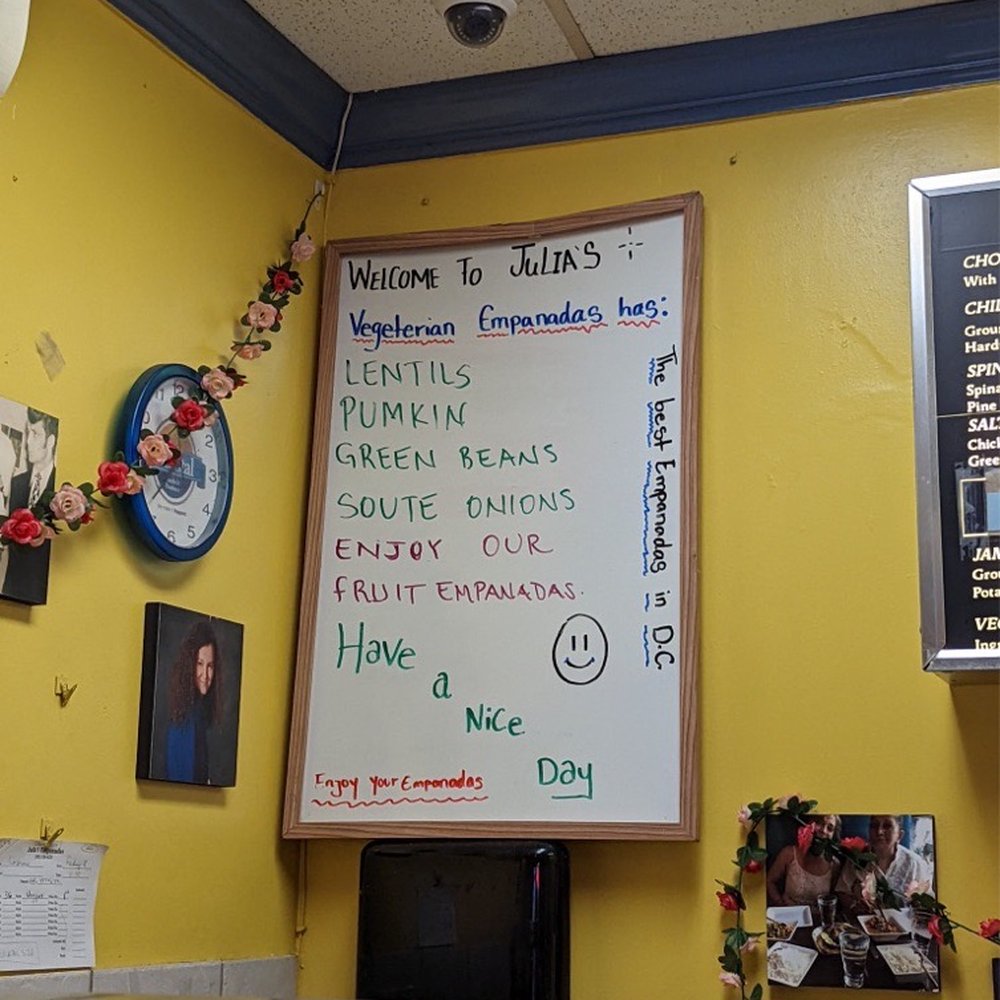 WELCOME TO JULIA'S
Vegeterian Empanadas has:
LENTILS
PUMKIN
GREEN BEANS
SOUTE ONIONS
ENJOY OUR
FRUIT EMPANADAS.
Have
a
Nice
Day
Enjoy Your Empanadas
The best Empanadas in D.C.
2
3
4
5
6
CHO
With
CHI
Grou
Hard
SPIN
Spina
Pine
SAL
Chick
Gree
JAM
Grou
Pota
VEG
Ingr